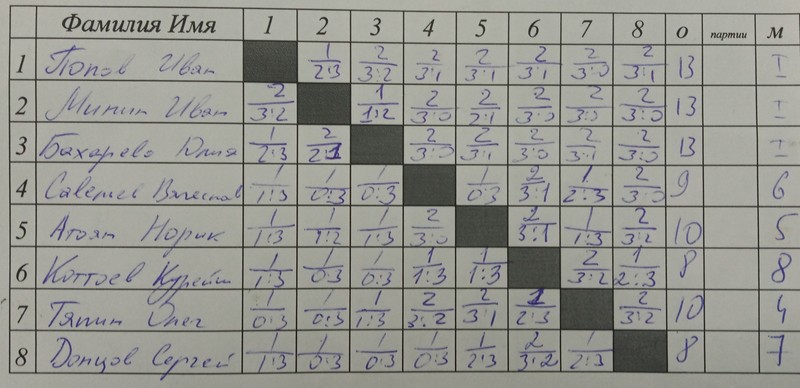 Фамилия Имя 1 2 3 4 5 6 7 8 о партии м
1 Попов Иван 1/2:3 2/3:2 2/3:1 2/3:1 2/3:1 2/3:0 2/3:1 13 I
2 Минин Иван 2/3:2 1/1:2 2/3:0 2/2:1 2/3:0 2/3:0 2/3:0 13 I
3 Бахарева Юлия 1/2:3 2/2:1 2/3:0 2/3:1 2/3:0 2/3:1 2/3:0 13 I
4 1/1:3 1/0:3 1/0:3 1/0:3 2/3:1 1/2:3 2/3:0 9 6
5 Атоян Норик 1/1:3 1/1:2 1/1:3 2/3:0 2/3:1 1/1:3 2/3:2 10 5
6 1/1:3 1/0:3 1/0:3 1/1:3 1/1:3 2/3:2 1/2:3 8 8
7 Тяпин Олег 1/0:3 1/0:3 1/1:3 2/3:2 2/3:1 1/2:3 2/3:2 10 4
8 Донцов Сергей 1/1:3 1/0:3 1/0:3 1/0:3 1/2:3 2/3:2 1/2:3 8 7